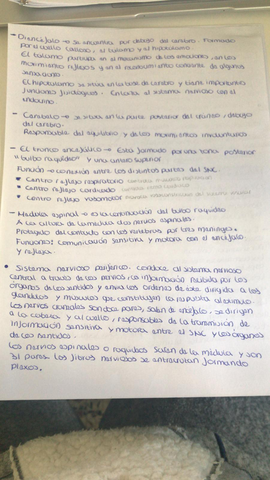 - Diencéfalo → se encuentra por debajo del cerebro. Formado
por el cuello cerebral, el talamo y el hipotalamo.
El talamo participa en el mecanismo de las emociones, en los
movimientos reflejos y en el reconocimiento consciente de algunas
sensaciones
El hipotalamo se situa en la base del cerebro y tiene importantes
funciones fisiologicas. Enlaza el sistema nervioso con el
endocrino
- Cerebelo → se situa en la parte posterior del cráneo, debajo
del cerebro.
Responsable del equilibrio y de los movimientos involuntarios
- El tronco encefálico → Esta formado por una zona posterior
o bulbo raquídeo y una central superior
Función → conexión entre los distintos puntos del SNC.
Centro reflejo respiratorio
Centro reflejo cardiaco
Centro reflejo vasomotor
- Médula espinal → es la continuación del bulbo raquídeo
A los lados de la médula los nervios espinales
Protegida del contacto con las vertebras por tres meninges.
Funciones: Comunicación sensitiva y motora con el encéfalo
y refleja
• Sistema nervioso periférico: conduce al sistema nervioso
central a través de los nervios, la información recibida por los
órganos de los sentidos y envia las ordenes de este dirigida a las
glandulas y músculos que constituyen la respuesta al estimulo
Los nervios craneales son doce pares, salen de encéfalo, se dirigen
a la cabeza y al cuello, responsables de la transmisión de
información sensitiva y motora entre el SNC y los órganos
de los sentidos.
Los nervios espinales o raquídeos salen de la médula y son
31 pares. Las fibras nerviosas se entrecruzan formando
plexos.